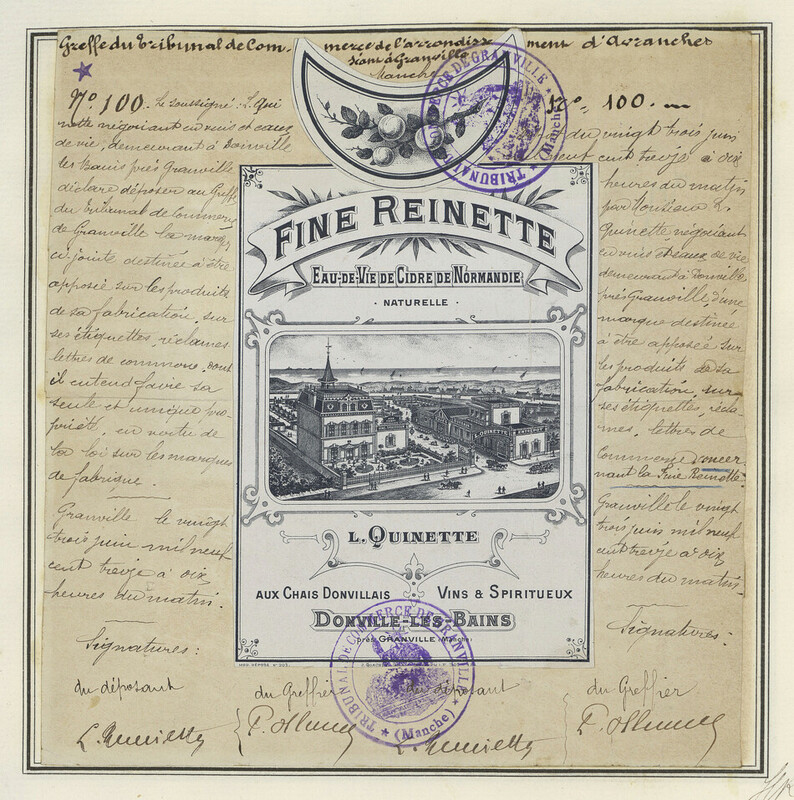 Greffe du Tribunal de Commerce de l'arrondissement d'Avranches
séant à Granville
Manche
N° 100. Le soussigné L. Qui
nette négociant en vins et eaux
de vie, demeurant à Donville
les Bains près Granville
déclare déposer au Greffe
du Tribunal de Commerce
de Granville la marque
ci jointe destinée à être
apposée sur les produits
de sa fabrication, sur
ses étiquettes, réclames
lettres de commerce, dont
il entend faire sa
seule et unique pro-
priété, en vertu de
la loi sur les marques
de fabrique.
Granville le vingt
trois juin mil neuf
cent treize à dix
heures du matin.
Signatures:
du déposant
L. Quinette
du Greffier
FINE REINETTE
EAU-DE-VIE DE CIDRE DE NORMANDIE
· NATURELLE ·
L. QUINETTE
L. QUINETTE
AUX CHAIS DONVILLAIS VINS & SPIRITUEUX
DONVILLE-LES-BAINS
près GRANVILLE (Manche)
TRIBUNAL DE COMMERCE DE GRANVILLE
(Manche)
TRIBUNAL DE COMMERCE DE GRANVILLE
(Manche)
N° 100.
du vingt trois juin
neuf cent treize à dix
heures du matin
par Monsieur L.
Quinette négociant
en vins et eaux de vie
demeurant à Donville
près Granville d'une
marque destinée
à être apposée sur
les produits de sa
fabrication sur
ses étiquettes, récla-
mes, lettres de
commerce concer
nant la Fine Reinette.
Granville le vingt
trois juin mil neuf
cent treize à dix
heures du matin.
Signatures:
du déposant
L. Quinette
du Greffier